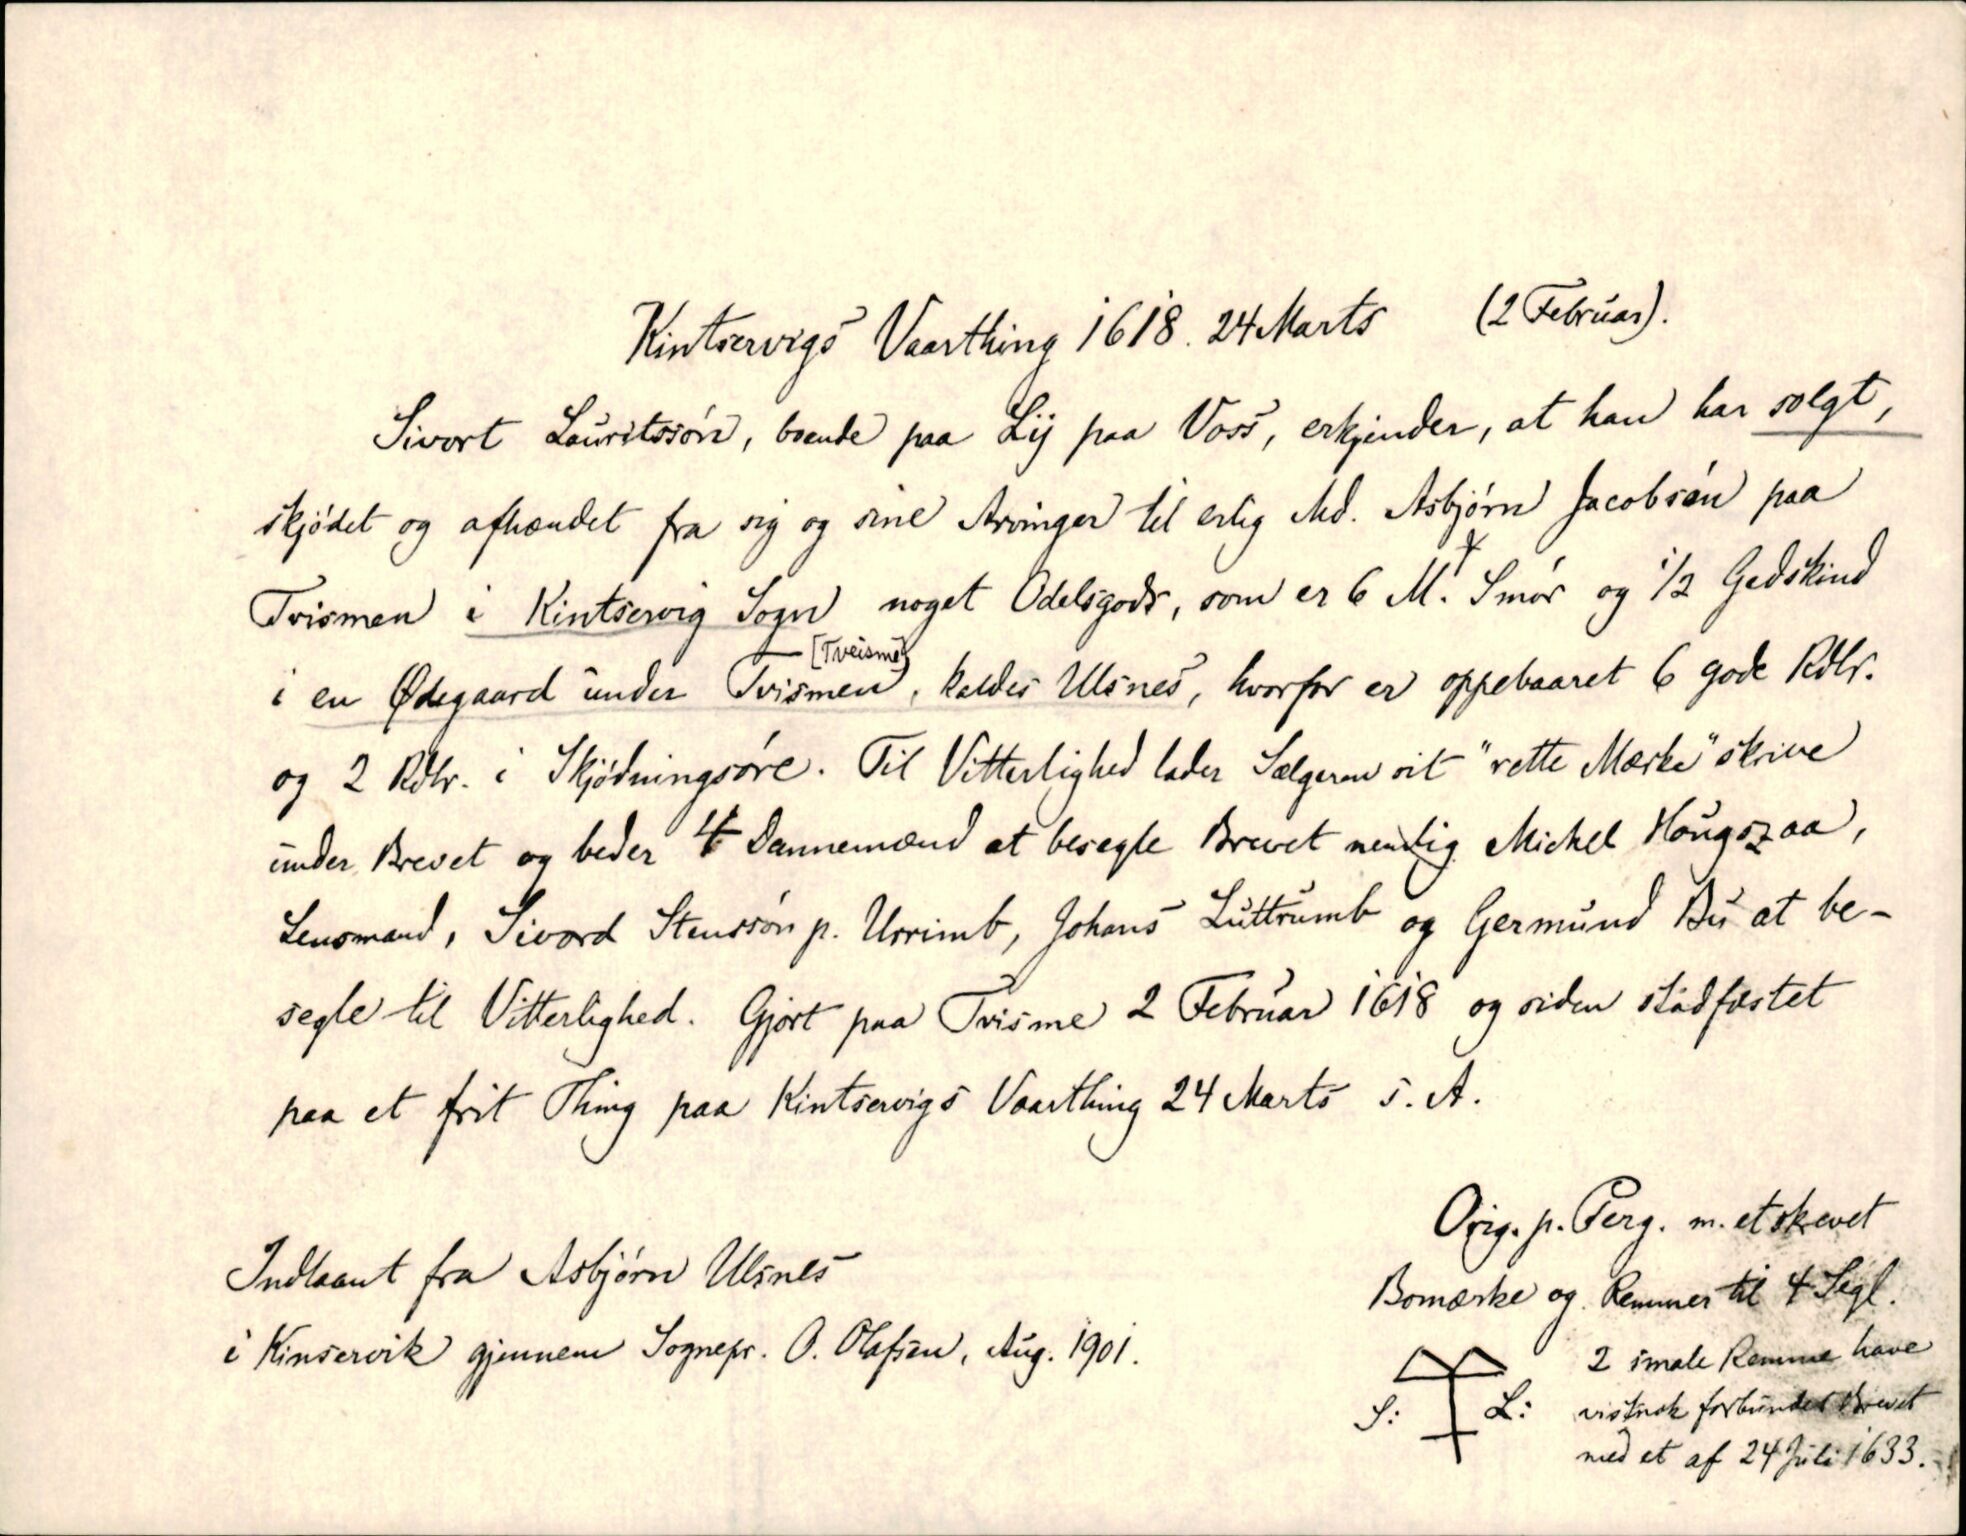 Kintservigs Vaarthing 1618. 24 Marts (2 Februar).
Sivort Lauritssön, boende paa Lij paa Voss, erkjender, at han har solgt,
skjödet og afhændet fra sig og sine Arvinger til erlig Md. Asbjörn Jacobsön paa
Trismen i Kintservig Sogn noget Odelsgods, som er 6 M. Smör og 1/2 Gedskind
[Tveisme]
i en Ødegaard under Tvismen, kaldes Ulsnes, hvorfor er oppebaaret 6 gode Rdlr.
og 2 Rdlr. i Skjödningsöre. Til Vitterlighed lader Sælgeren sit "rette Mærke" skrive
under Brevet og beder 4 Dannemænd at besegle Brevet nemlig Michel Hougszaa,
Lensmand, Sivord Stenssön p. Urrimb, Johans Luttrumb og Germund Bu at be-
segle til Vitterlighed. Gjort paa Tvisme 2 Februar 1618 og siden stadfæstet
paa et frit Thing paa Kintservigs Vaarthing 24 Marts s. A.
Indlaant fra Asbjörn Ulsnes
i Kinservik gjennem Sognepr. O. Olafsen, Aug. 1901.
Orig. p. Perg. m. et skrevet
Bomærke og Remmer til 4 Segl.
S: L:
2 smale Remme have
vistnok forbundet Brevet
med et af 24 Juli 1633.